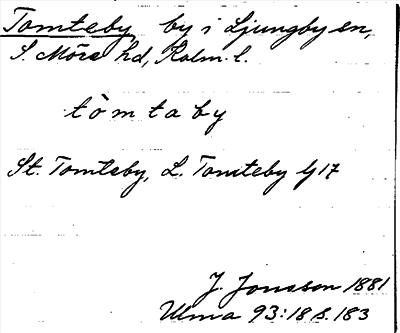 Tomteby by i Ljungby sn,
S. Möre hd, Kalm. l.
tòmtaby
St. Tomteby, L. Tomteby Gj17
J. Jonsson 1881
Ulma 93:18 s. 183